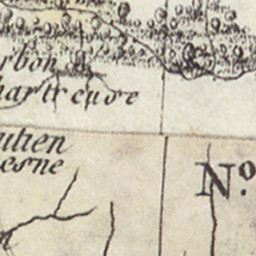 rbon
hartreuse
ulien
esne
N.º